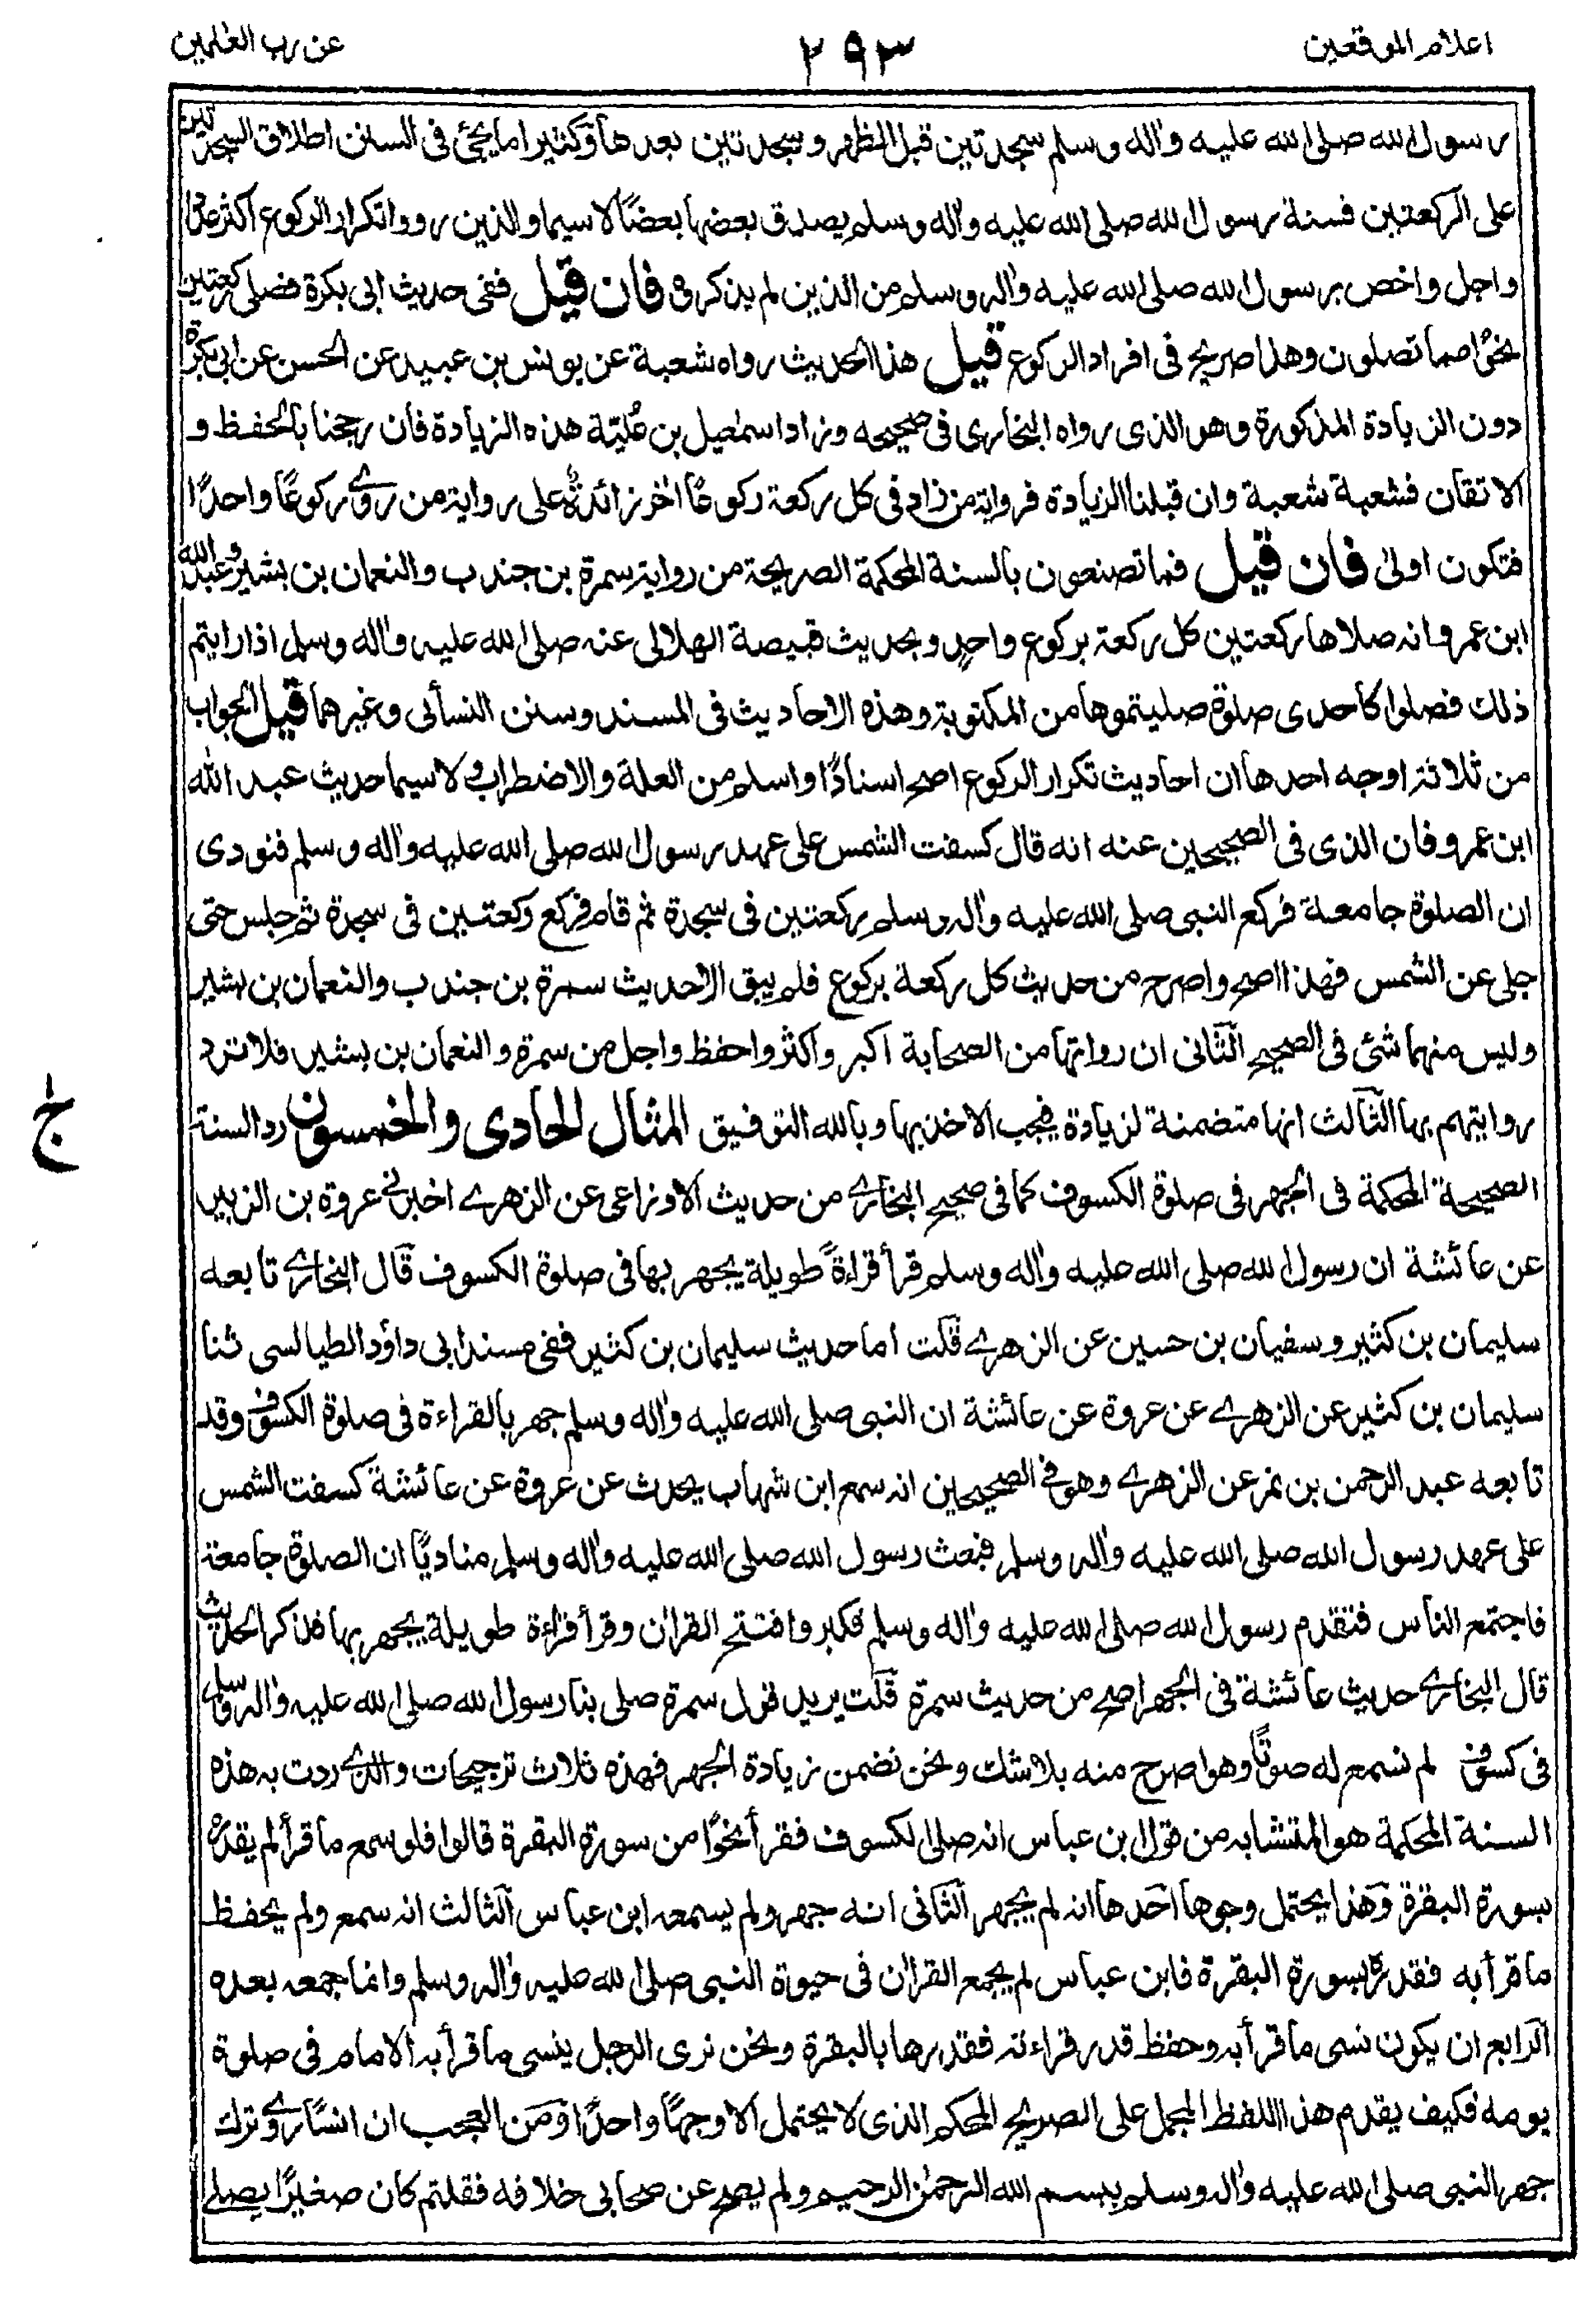 اعلام الموقعین
۲۹۳
عن رب العٰلمین
رسول الله صلی الله علیه واٰله وسلم سجدتین قبل الظهر وسجدتین بعدها وکثیرا ما یجئ فی السنن اطلاق السجدتین
علی الرکعتین فسنة رسول الله صلی الله علیه واٰله وسلم یصدق بعضها بعضًا لا سیما والذین رووا تکرار الرکوع اکثر عددا
واجل واخص برسول الله صلی الله علیه واٰله وسلم من الذین لم یذکروه فان قیل ففی حدیث ابی بکرة فصلی رکعتین
نحوًا مما تصلون وهذا صریح فی افراد الرکوع قیل هذا الحدیث رواه شعبة عن یونس بن عبید عن الحسن عن ابی بکرة
دون الزیادة المذکورة وهو الذی رواه البخاری فی صحیحه وزاد اسمٰعیل بن عُلیّة هذه الزیادة فان رجحنا بالحفظ و
الاتقان فشعبة شعبة وان قبلنا الزیادة فروایة من زاد فی کل رکعة رکوعًا اٰخر زائدةٌ علی روایة من روی رکوعًا واحدًا
فتکون اولیٰ فان قیل فما تصنعون بالسنة المحکمة الصریحة من روایة سمرة بن جندب والنعمان بن بشیر وعبد الله
ابن عمرو انه صلاها رکعتین کل رکعة برکوع واحدٍ وبحدیث قبیصة الهلالی عنه صلی الله علیه واٰله وسلم اذا رایتم
ذلك فصلوا کاحدی صلوٰة صلیتموها من المکتوبة وهذه الاحادیث فی المسند وسنن النسأئی وغیرهما قیل الجواب
من ثلاثة اوجه احدها ان احادیث تکرار الرکوع اصح اسنادًا واسلم من العلة والاضطراب ولا سیما حدیث عبد الله
ابن عمرو فان الذی فی الصحیحین عنه انه قال کسفت الشمس علی عهد رسول الله صلی الله علیه واٰله وسلم فنودی
ان الصلوٰة جامعة فرکع النبی صلی الله علیه واٰله وسلم رکعتین فی سجدة ثم قام فرکع رکعتین فی سجدة ثم جلس حتی
جلی عن الشمس فهذا اصح واصرح من حدیث کل رکعة برکوع فلم یبق الا حدیث سمرة بن جندب والنعمان بن بشیر
ولیس منهما شئ فی الصحیح الثّانی ان رواتها من الصحابة اکبر واکثر واحفظ واجل من سمرة والنعمان بن بشیر فلا ترد
روایتهم بها الثّالث انها متضمنة لزیادة فیجب الاخذ بها وبالله التوفیق المثال الحادی والخمسون رد السنة
الصحیحة المحکمة فی الجهر فی صلوٰة الکسوف کما فی صحیح البخاری من حدیث الاوزاعی عن الزهری اخبرنی عروة بن الزبیر
عن عائشة ان رسول الله صلی الله علیه واٰله وسلم قرأ قراءةً طویلة یجهر بها فی صلوٰة الکسوف قال البخاری تابعه
سلیمان بن کثیر وسفیان بن حسین عن الزهری قلت اما حدیث سلیمان بن کثیر ففی مسند ابی داؤد الطیالسی ثنا
سلیمان بن کثیر عن الزهری عن عروة عن عائشة ان النبی صلی الله علیه واٰله وسلم جهر بالقراءة فی صلوٰة الکسوف وقد
تابعه عبد الرحمن بن نمر عن الزهری وهو فی الصحیحین انه سمع ابن شهاب یحدث عن عروة عن عائشة کسفت الشمس
علی عهد رسول الله صلی الله علیه واٰله وسلم فبعث رسول الله صلی الله علیه واٰله وسلم منادیًا ان الصلوٰة جامعة
فاجتمع الناس فتقدم رسول الله صلی الله علیه واٰله وسلم فکبر وافتتح القراٰن وقرأ قراءة طویلة یجهر بها فذکر الحدیث
قال البخاری حدیث عائشة فی الجهر اصح من حدیث سمرة قلت یرید قول سمرة صلی بنا رسول الله صلی الله علیه واٰله وسلم
فی کسوف لم نسمع له صوتًا وهو اصرح منه بلا شك ونحن نضمن زیادة الجهر فهذه ثلاث ترجیحات والذی ردت به هذه
السنة المحکمة هو المتشابه من قول ابن عباس انه صلی الکسوف فقرأ نحوًا من سورة البقرة قالوا فلو سمع ما قرأ لم یقدره
بسورة البقرة وهٰذا یحتمل وجوها احدها انه لم یجهر الثانی انه جهر ولم یسمعه ابن عباس الثالث انه سمع ولم یحفظ
ما قرأ به فقدره بسورة البقرة فابن عباس لم یجمع القراٰن فی حیوة النبی صلی الله علیه واٰله وسلم وانما جمعه بعده
الرابع ان یکون نسی ما قرأ به وحفظ قدر قراءته فقدرها بالبقرة ونحن نری الرجل ینسی ما قرأ به الامام فی صلوة
یومه فکیف یقدم هذا اللفظ المجمل علی الصریح المحکم الذی لا یحتمل الا وجهًا واحدًا ومن العجب ان انسًا روی ترك
جهر النبی صلی الله علیه واٰله وسلم ببسم الله الرحمٰن الرحیم ولم یصح عن صحابی خلافه فقلتم کان صغیرًا یصلی
ج